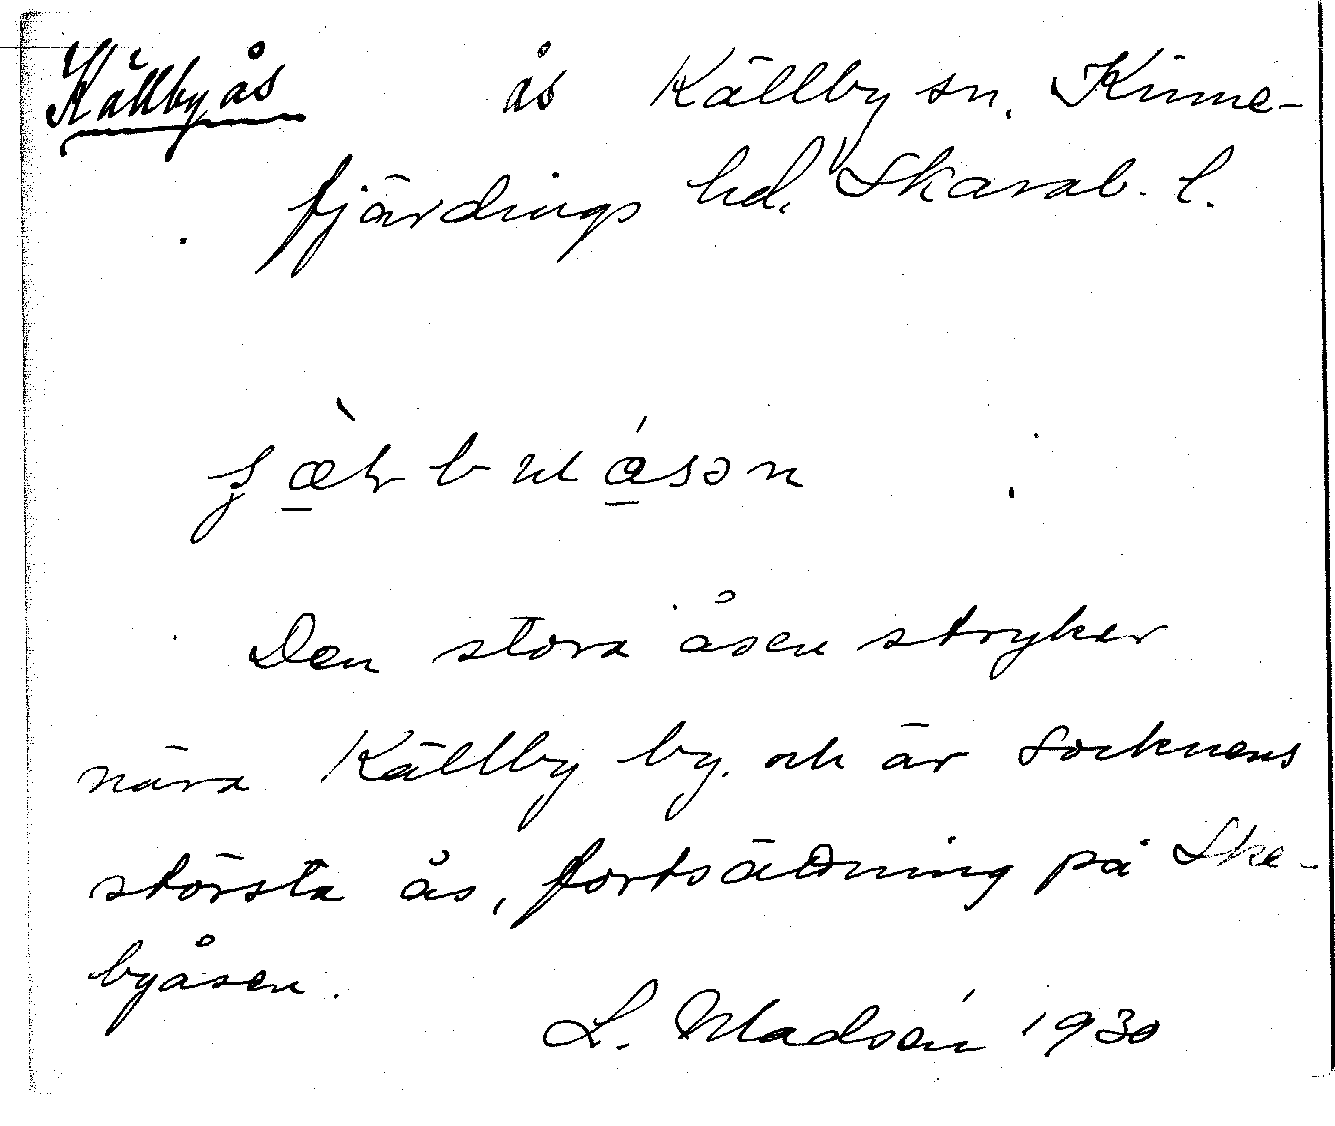 Källbyås ås Källby sn. Kinne-
fjärdings hd. Skarab. l.
Den stora åsen stryker
nära Källby by. och är socknens
största ås, fortsättning på Ske-
byåsen.
L. Madsén 1930